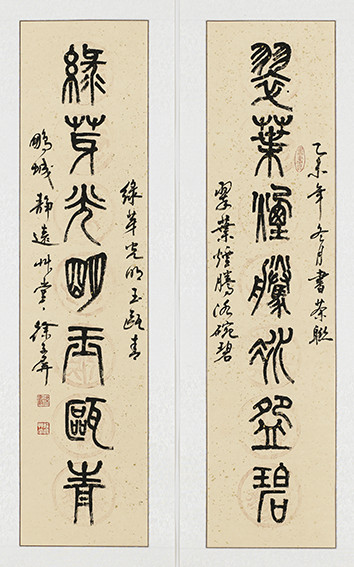 乙未年冬月書茶聯
翠葉煙騰冰碗碧
翠葉煙騰冰碗碧
綠芽光明玉甌青
綠芽光明玉甌青
鵬城靜遠艸堂徐